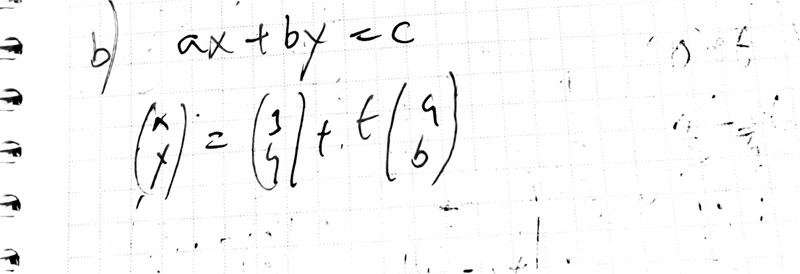 b) ax + by = c
(x y) = (3 4) + t (a b)